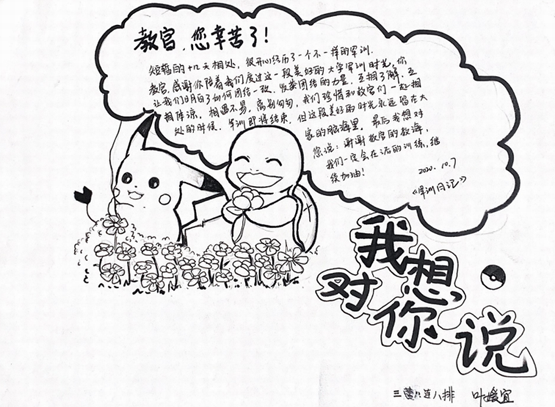 教官,您幸苦了!
短暂的十几天相处,很开心经历了一个不一样的军训.
教官,感谢你陪着我们度过这一段美好的大学军训时光,你
让我们明白了如何团结一致,发挥团结的力量,互相了解,互
相陪谅,相遇不易,离别匆匆,我们珍惜和教官们一起相
处的时候,军训即将结束,但这段美好的时光永远留在大
家的脑海里,最后我想对
您说:谢谢教官的教诲,
我们一定会在后的训练,继
续加油!
2020.10.7
《军训日记》
我想
对你说
三营八连八排 叶媛宜